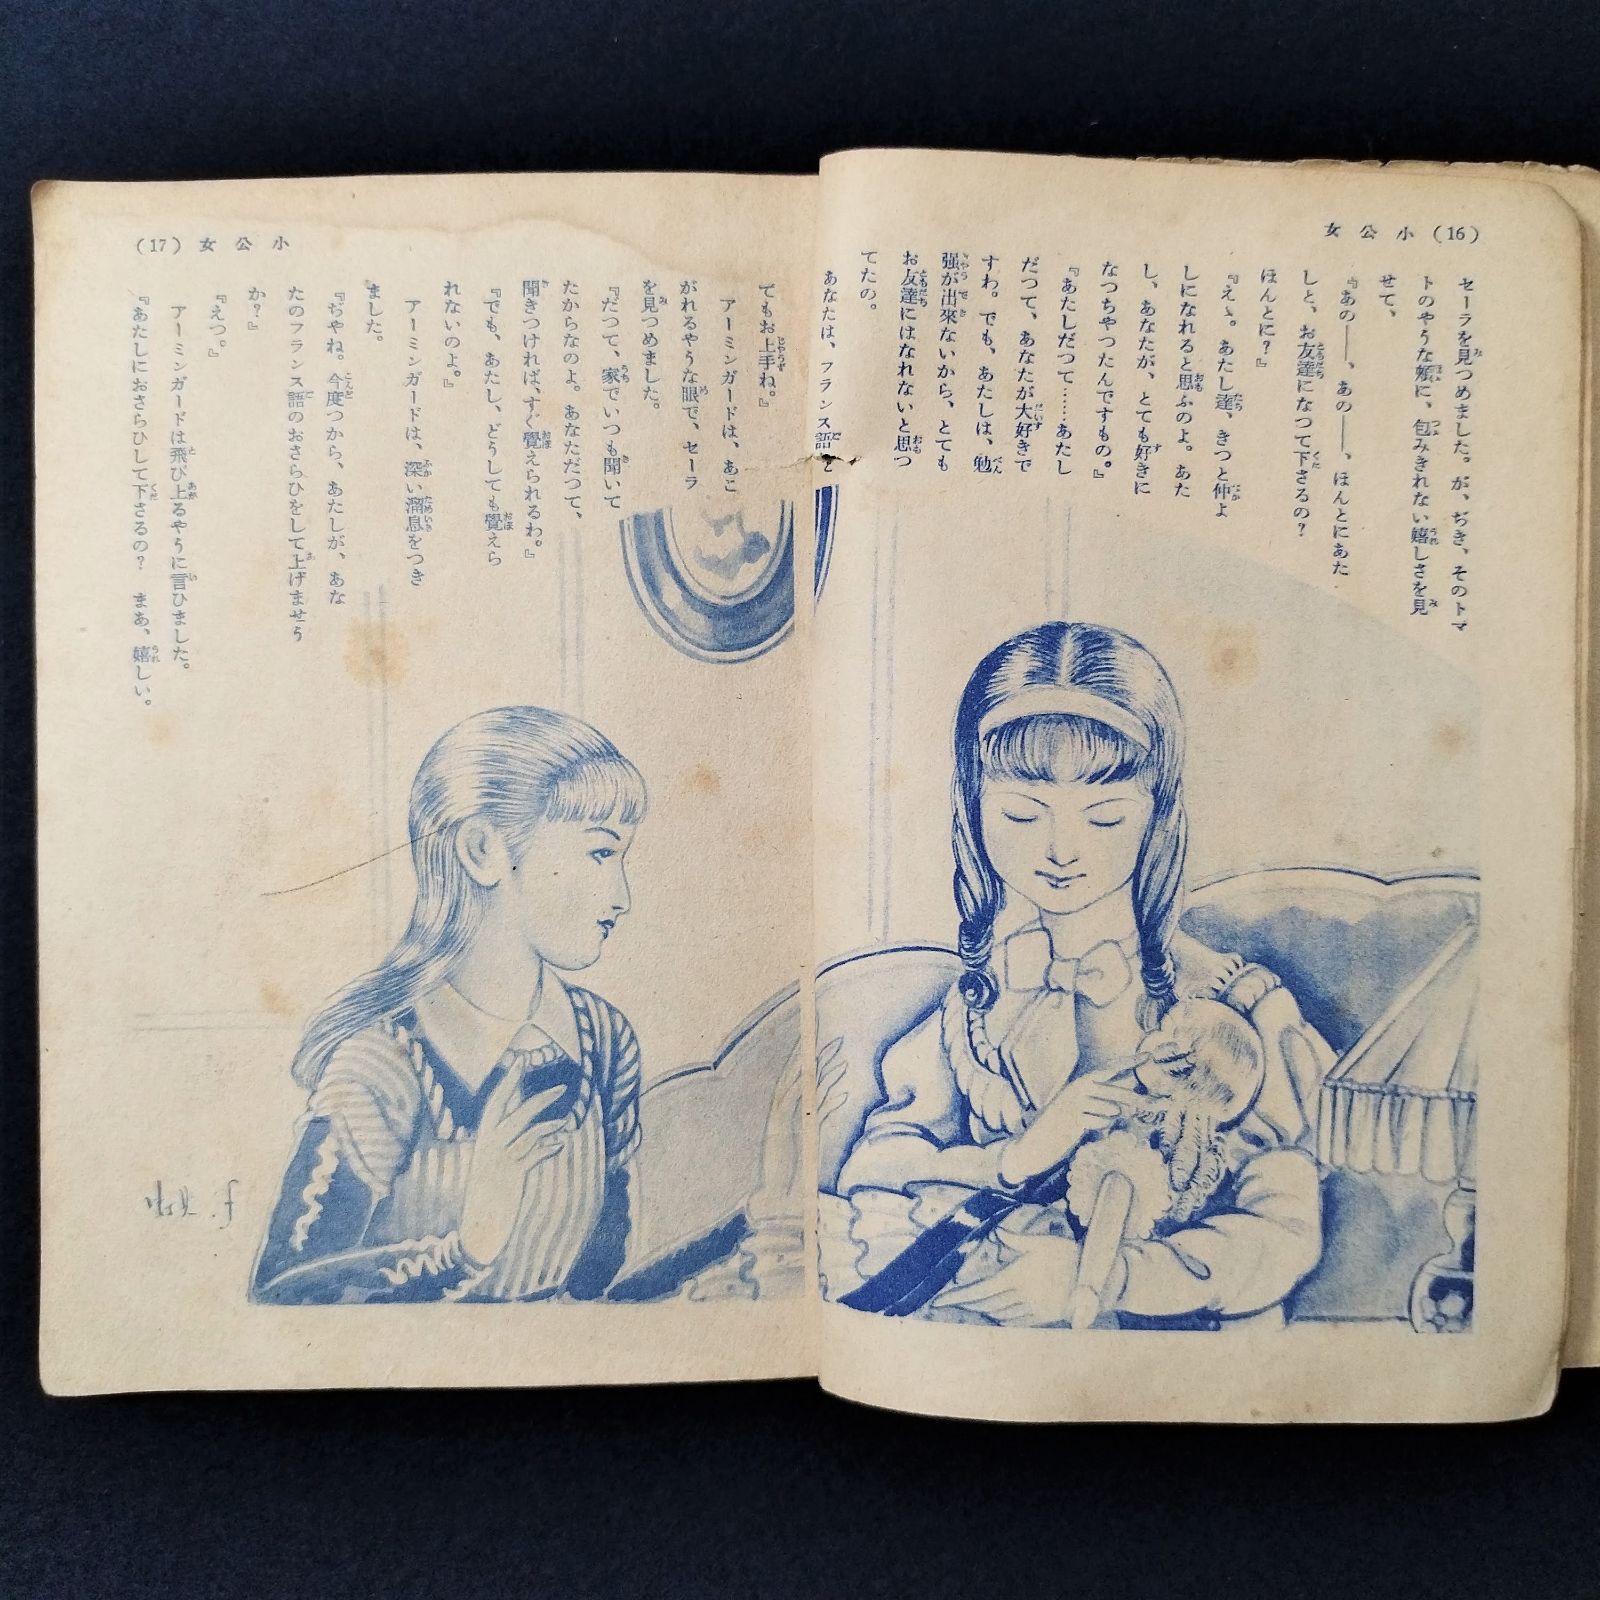 小公女(16)
セーラを見つめました。が、ぢき、そのトマ
トのやうな頰に、包みきれない嬉しさを見
せて、
『あの――、あの――、ほんとにあた
しと、お友達になつて下さるの?
ほんとに?』
『えゝ。あたし達、きつと仲よ
しになれると思ふのよ。あた
し、あなたが、とても好きに
なつちやつたんですもの。』
『あたしだつて……あたし
だつて、あなたが大好きで
すわ。でも、あたしは、勉
強が出來ないから、とても
お友達にはなれないと思つ
てたの。
あなたは、フランス語と
小公女(17)
てもお上手ね。』
アーミンガードは、あこ
がれるやうな眼で、セーラ
を見つめました。
『だつて、家でいつも聞いて
たからなのよ。あなただつて、
聞きつければ、すぐ覺えられるわ。』
『でも、あたし、どうしても覺えら
れないのよ。』
アーミンガードは、深い溜息をつき
ました。
『ぢやね。今度つから、あたしが、あな
たのフランス語のおさらひをして上げませう
か?』
『えつ。』
アーミンガードは飛び上るやうに言ひました。
『あたしにおさらひして下さるの? まあ、嬉しい。